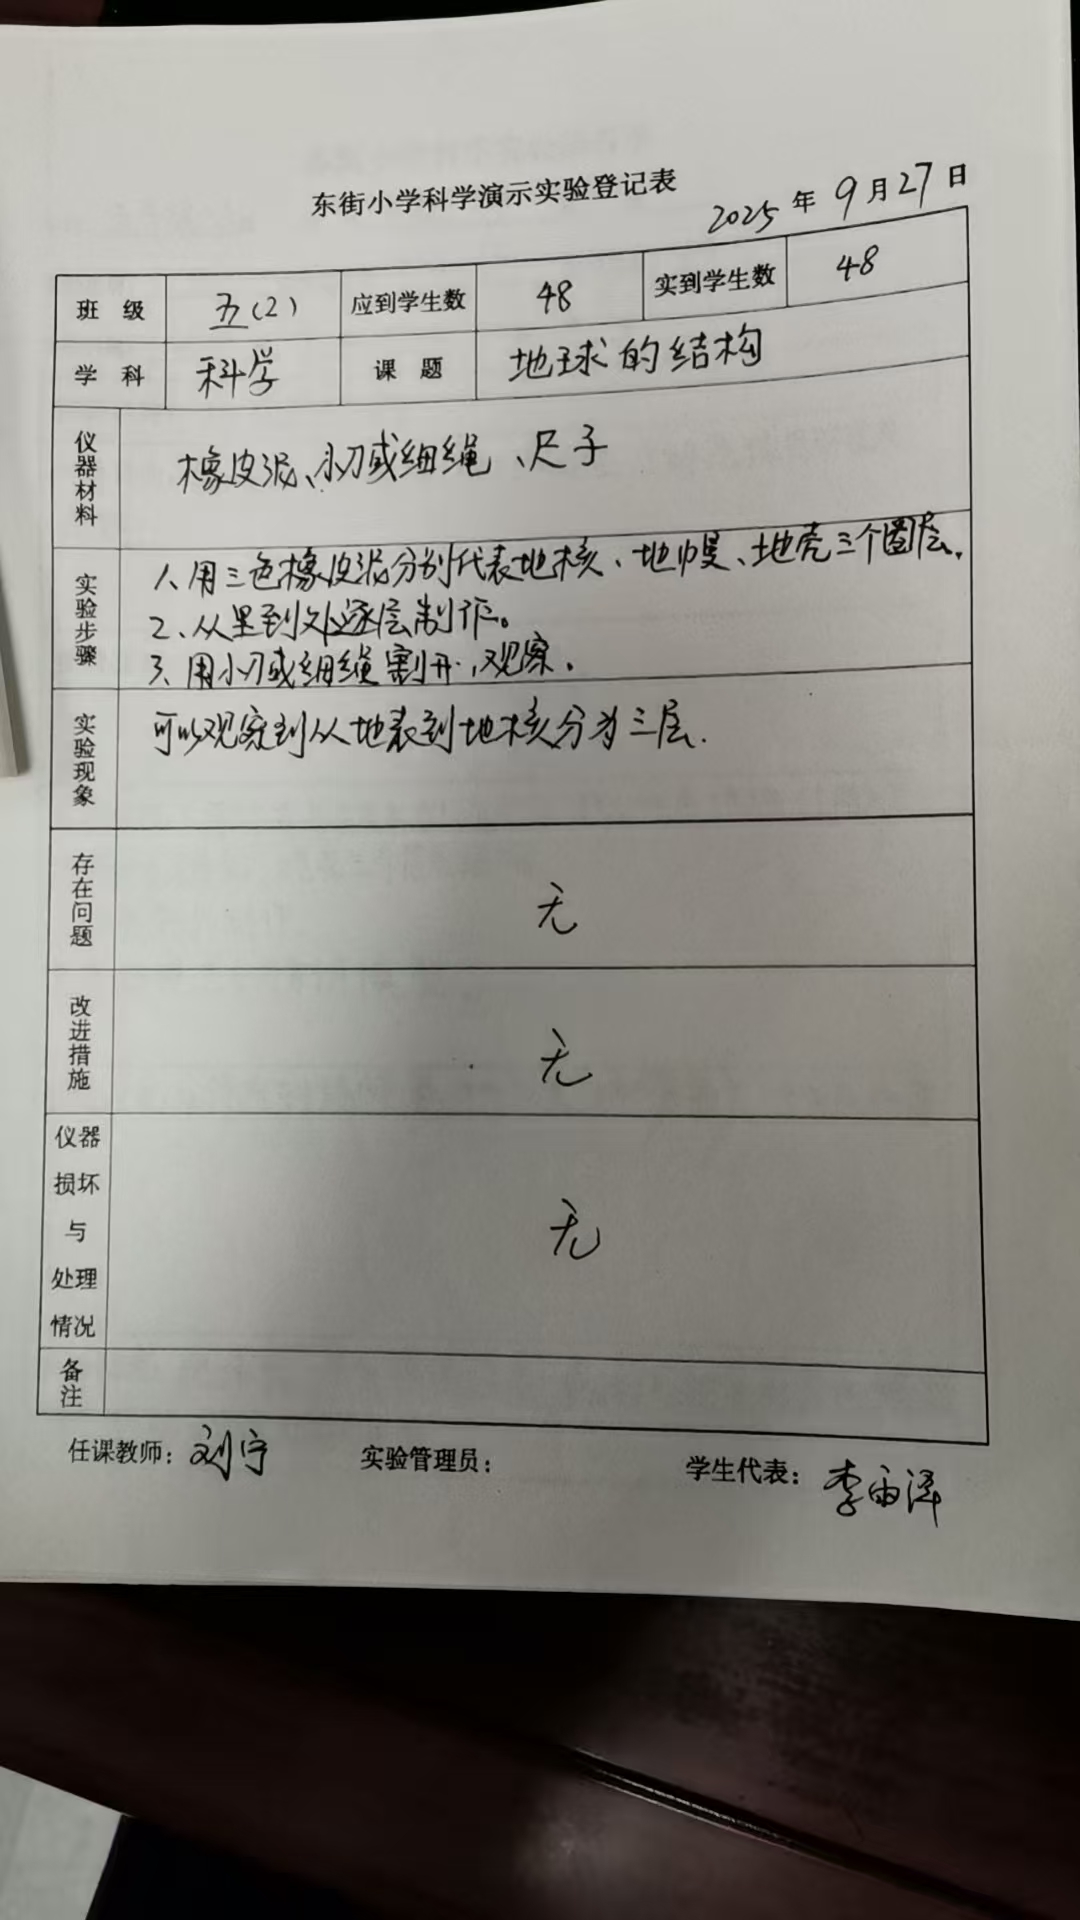 东街小学科学演示实验登记表
2025年9月27日
班 级 五(2) 应到学生数 48 实到学生数 48
学 科 科学 课 题 地球的结构
仪器材料 橡皮泥、小刀或细绳、尺子
实验步骤 1、用三色橡皮泥分别代表地核、地幔、地壳三个圈层。
2、从里到外逐层制作。
3、用小刀或细绳割开,观察。
实验现象 可以观察到从地表到地核分为三层.
存在问题 无
改进措施 无
仪器损坏与处理情况 无
备注
任课教师：刘宁 实验管理员： 学生代表：李雨泽